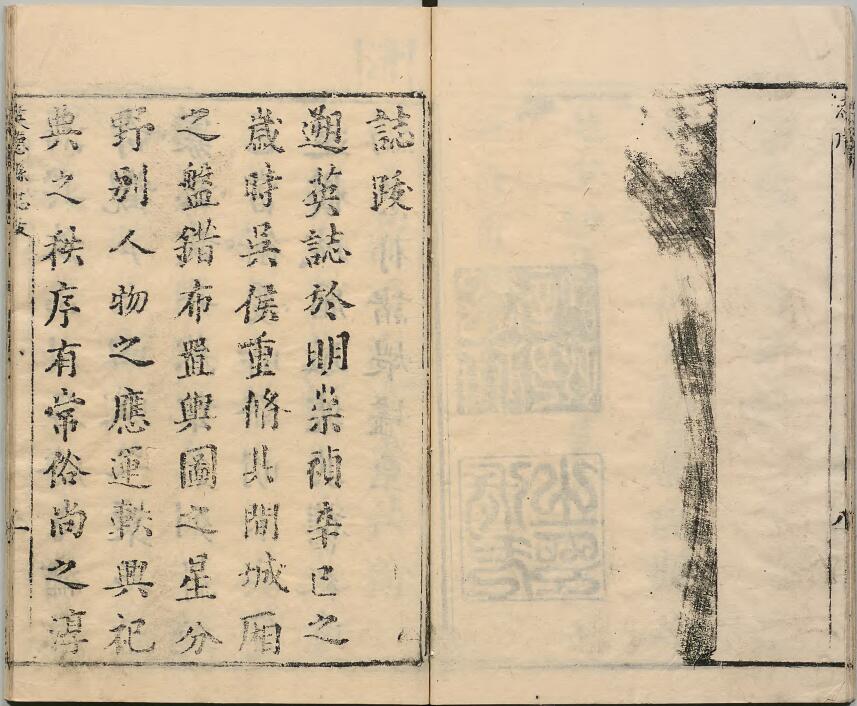 誌跋
遡英誌於明崇禎辛巳之
歲時吳侯重修其間城廂
之盤錯布置輿圖之星分
野別人物之應運軼興祀
典之秩序有常俗尚之淳